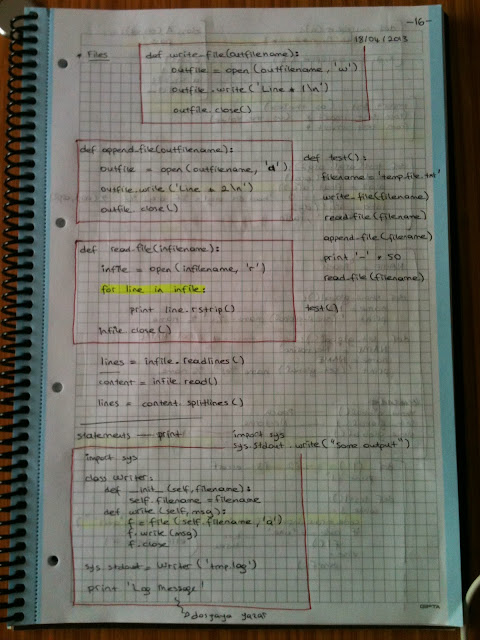 -16-
18/04/2013
* Files
def write_file(outfilename):
outfile = open(outfilename, 'w')
outfile.write('Line * 1\n')
outfile.close()
def append_file(outfilename):
outfile = open(outfilename, 'a')
outfile.write('Line * 2\n')
outfile.close()
def test():
filename = 'temp.file.txt'
write_file(filename)
read_file(filename)
append_file(filename)
print '-' * 50
read_file(filename)
test()
def read_file(infilename):
infile = open(infilename, 'r')
for line in infile:
print line.rstrip()
infile.close()
lines = infile.readlines()
content = infile.read()
lines = content.splitlines()
statements — print
import sys
sys.stdout.write("Some output")
import sys
class Writer:
def __init__(self, filename):
self.filename = filename
def write(self, msg):
f = file(self.filename, 'a')
f.write(msg)
f.close
sys.stdout = Writer('tmp.log')
print 'Log Message'
dosyaya yazar